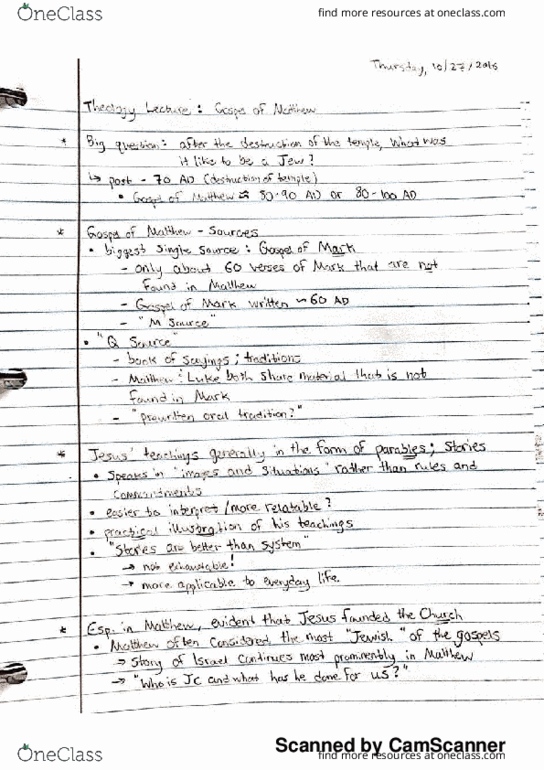 OneClass
find more resources at oneclass.com
Thursday, 10/27/2016
Theology Lecture: Gospel of Matthew
* Big question: after the destruction of the temple, What was
it like to be a Jew?
↳ post - 70 AD (destruction of temple)
• Gospel of Matthew ≈ 80-90 AD or 80-100 AD
* Gospel of Matthew - Sources
• biggest single source: Gospel of Mark
- only about 60 verses of Mark that are not
found in Matthew
- Gospel of Mark written ~60 AD
- "M Source"
• "Q Source"
- book of sayings; traditions
- Matthew; Luke both share material that is not
found in Mark
- "prewritten oral tradition?"
* Jesus' teachings generally in the form of parables; stories
• Speaks in "images and situations" rather than rules and
• easier to interpret/more relatable?
• practical illustration of his teachings
• "Stories are better than system"
→ not exhaustable!
→ more applicable to everyday life.
* Esp. in Matthew, evident that Jesus founded the Church
• Matthew often considered the most "Jewish" of the gospels
→ Story of Israel continues most prominently in Matthew
→ "Who is JC and what has he done for us?"
Scanned by CamScanner
OneClass
find more resources at oneclass.com